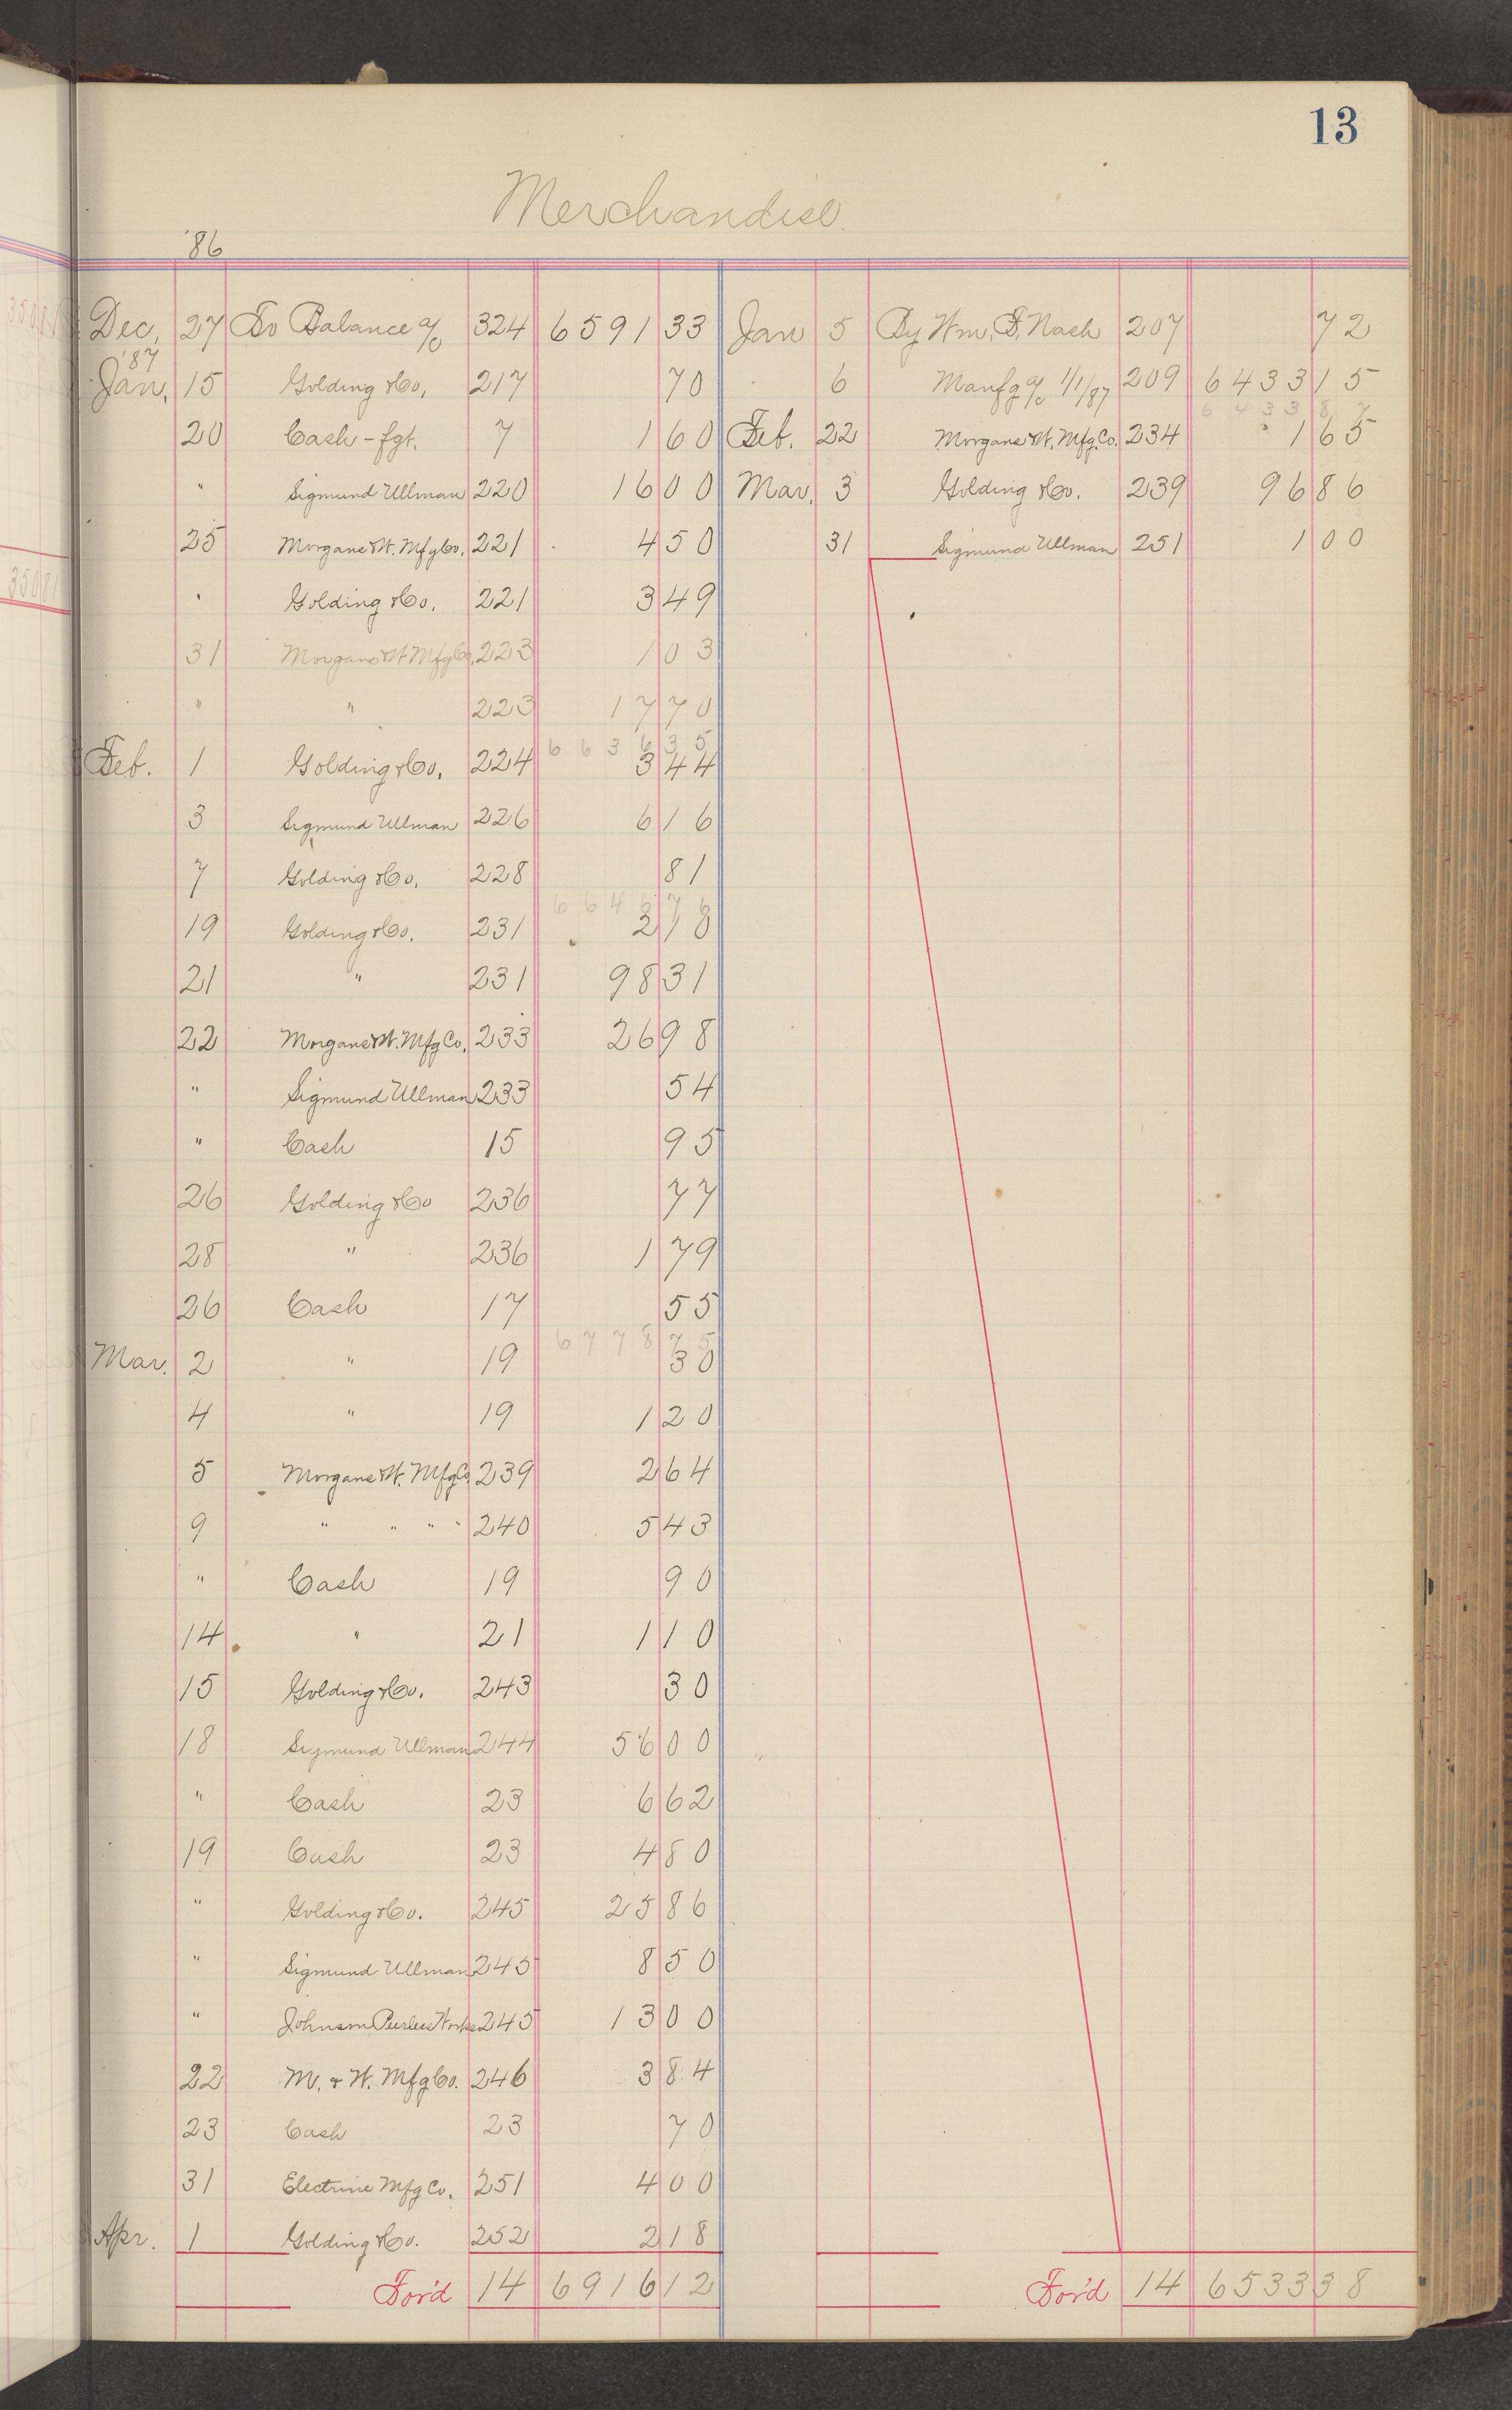 13
Merchandise.
'86
Dec. 27 To Balance a/c 324 6591 33 Jan 5 By Wm. F. Nash 207 72
'87
Jan. 15 Golding & Co. 217 70 6 Manfg a/c 1/1/87 209 6433 15
6433 87
20 Cash - fgt. 7 1 60 Feb. 22 Morgans & W. Mfg. Co. 234 1 65
" Sigmund Ullman 220 16 00 Mar. 3 Golding & Co. 239 96 86
25 Morgans & W. Mfg Co. 221 4 50 31 Sigmund Ullman 251 1 00
" Golding & Co. 221 3 49
31 Morgans & W Mfg Co. 223 1 03
" " 223 17 70
6636 35
Feb. 1 Golding & Co. 224 3 44
3 Sigmund Ullman 226 6 16
7 Golding & Co. 228 81
6646 76
19 Golding & Co. 231 2 10
21 " 231 98 31
22 Morgans & W. Mfg Co. 233 26 98
" Sigmund Ullman 233 54
" Cash 15 95
26 Golding & Co 236 77
28 " 236 1 79
26 Cash 17 55
6778 75
Mar. 2 " 19 30
4 " 19 1 20
5 Morgans & W. Mfg Co. 239 2 64
9 " " " " 240 5 43
" Cash 19 90
14 " 21 1 10
15 Golding & Co. 243 30
18 Sigmund Ullman 244 56 00
" Cash 23 6 62
19 Cash 23 4 80
" Golding & Co. 245 25 86
" Sigmund Ullman 245 8 50
" Johnson Peerless Works 245 13 00
22 M. & W. Mfg Co. 246 3 84
23 Cash 23 70
31 Electrine Mfg Co. 251 4 00
Apr. 1 Golding & Co. 252 2 18
For'd 14 6916 12 For'd 14 6533 38